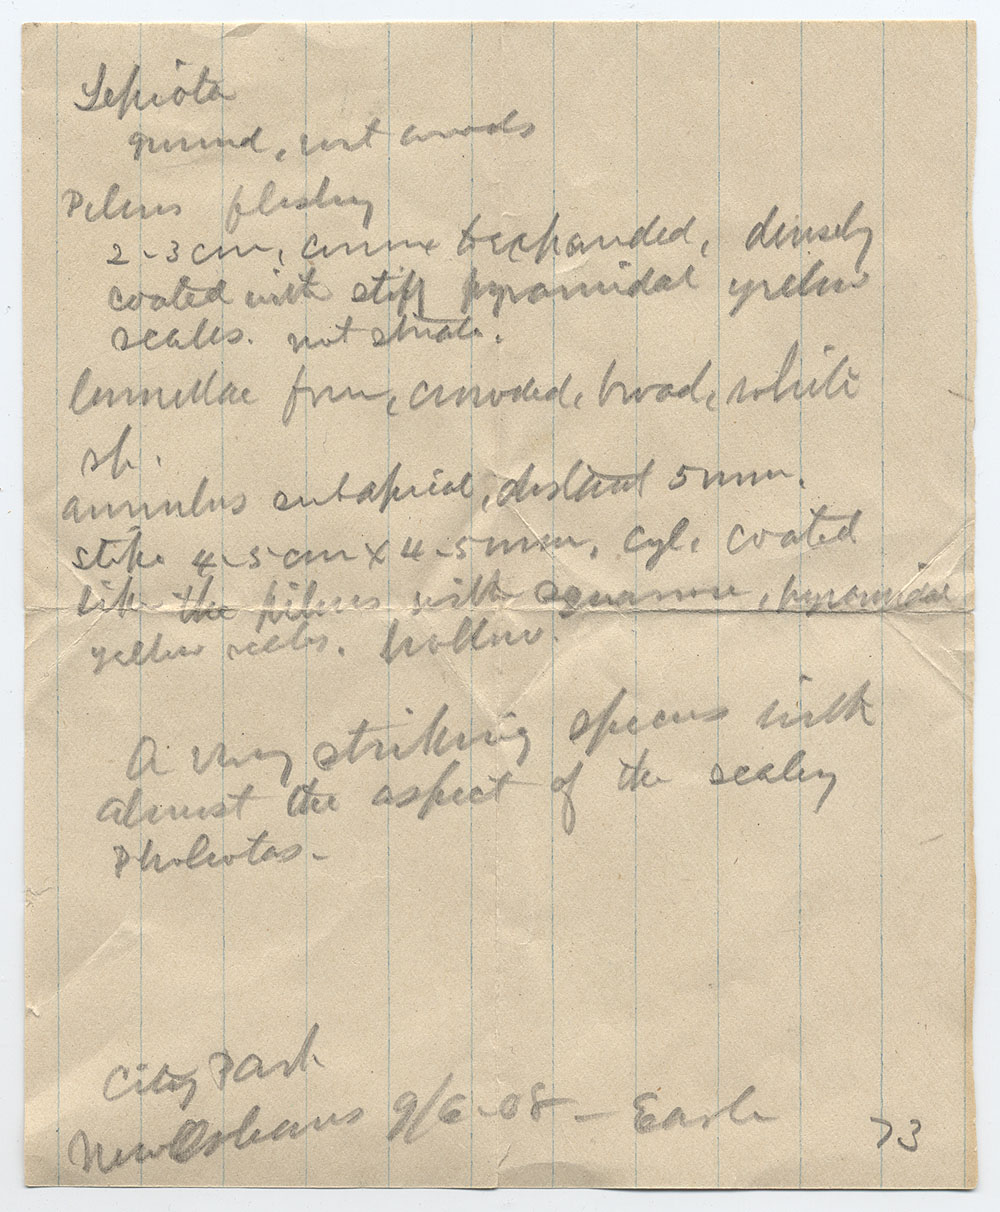 Lepiota
ground, wet woods
Pileus fleshy
2-3 cm, convex to expanded, densely
coated with stiff pyramidal yellow
scales. not striate.
lamellae free, crowded, broad, white
sh.
annulus subapical, distant 5 mm.
stipe 4-5 cm x 4-5 mm, cyl. coated
like the pileus with squarrose, pyramidal
yellow scales. hollow.
A very striking species with
almost the aspect of the scaley
Pholiotas.
City Park
New Orleans 9/6-08 - Earle
73